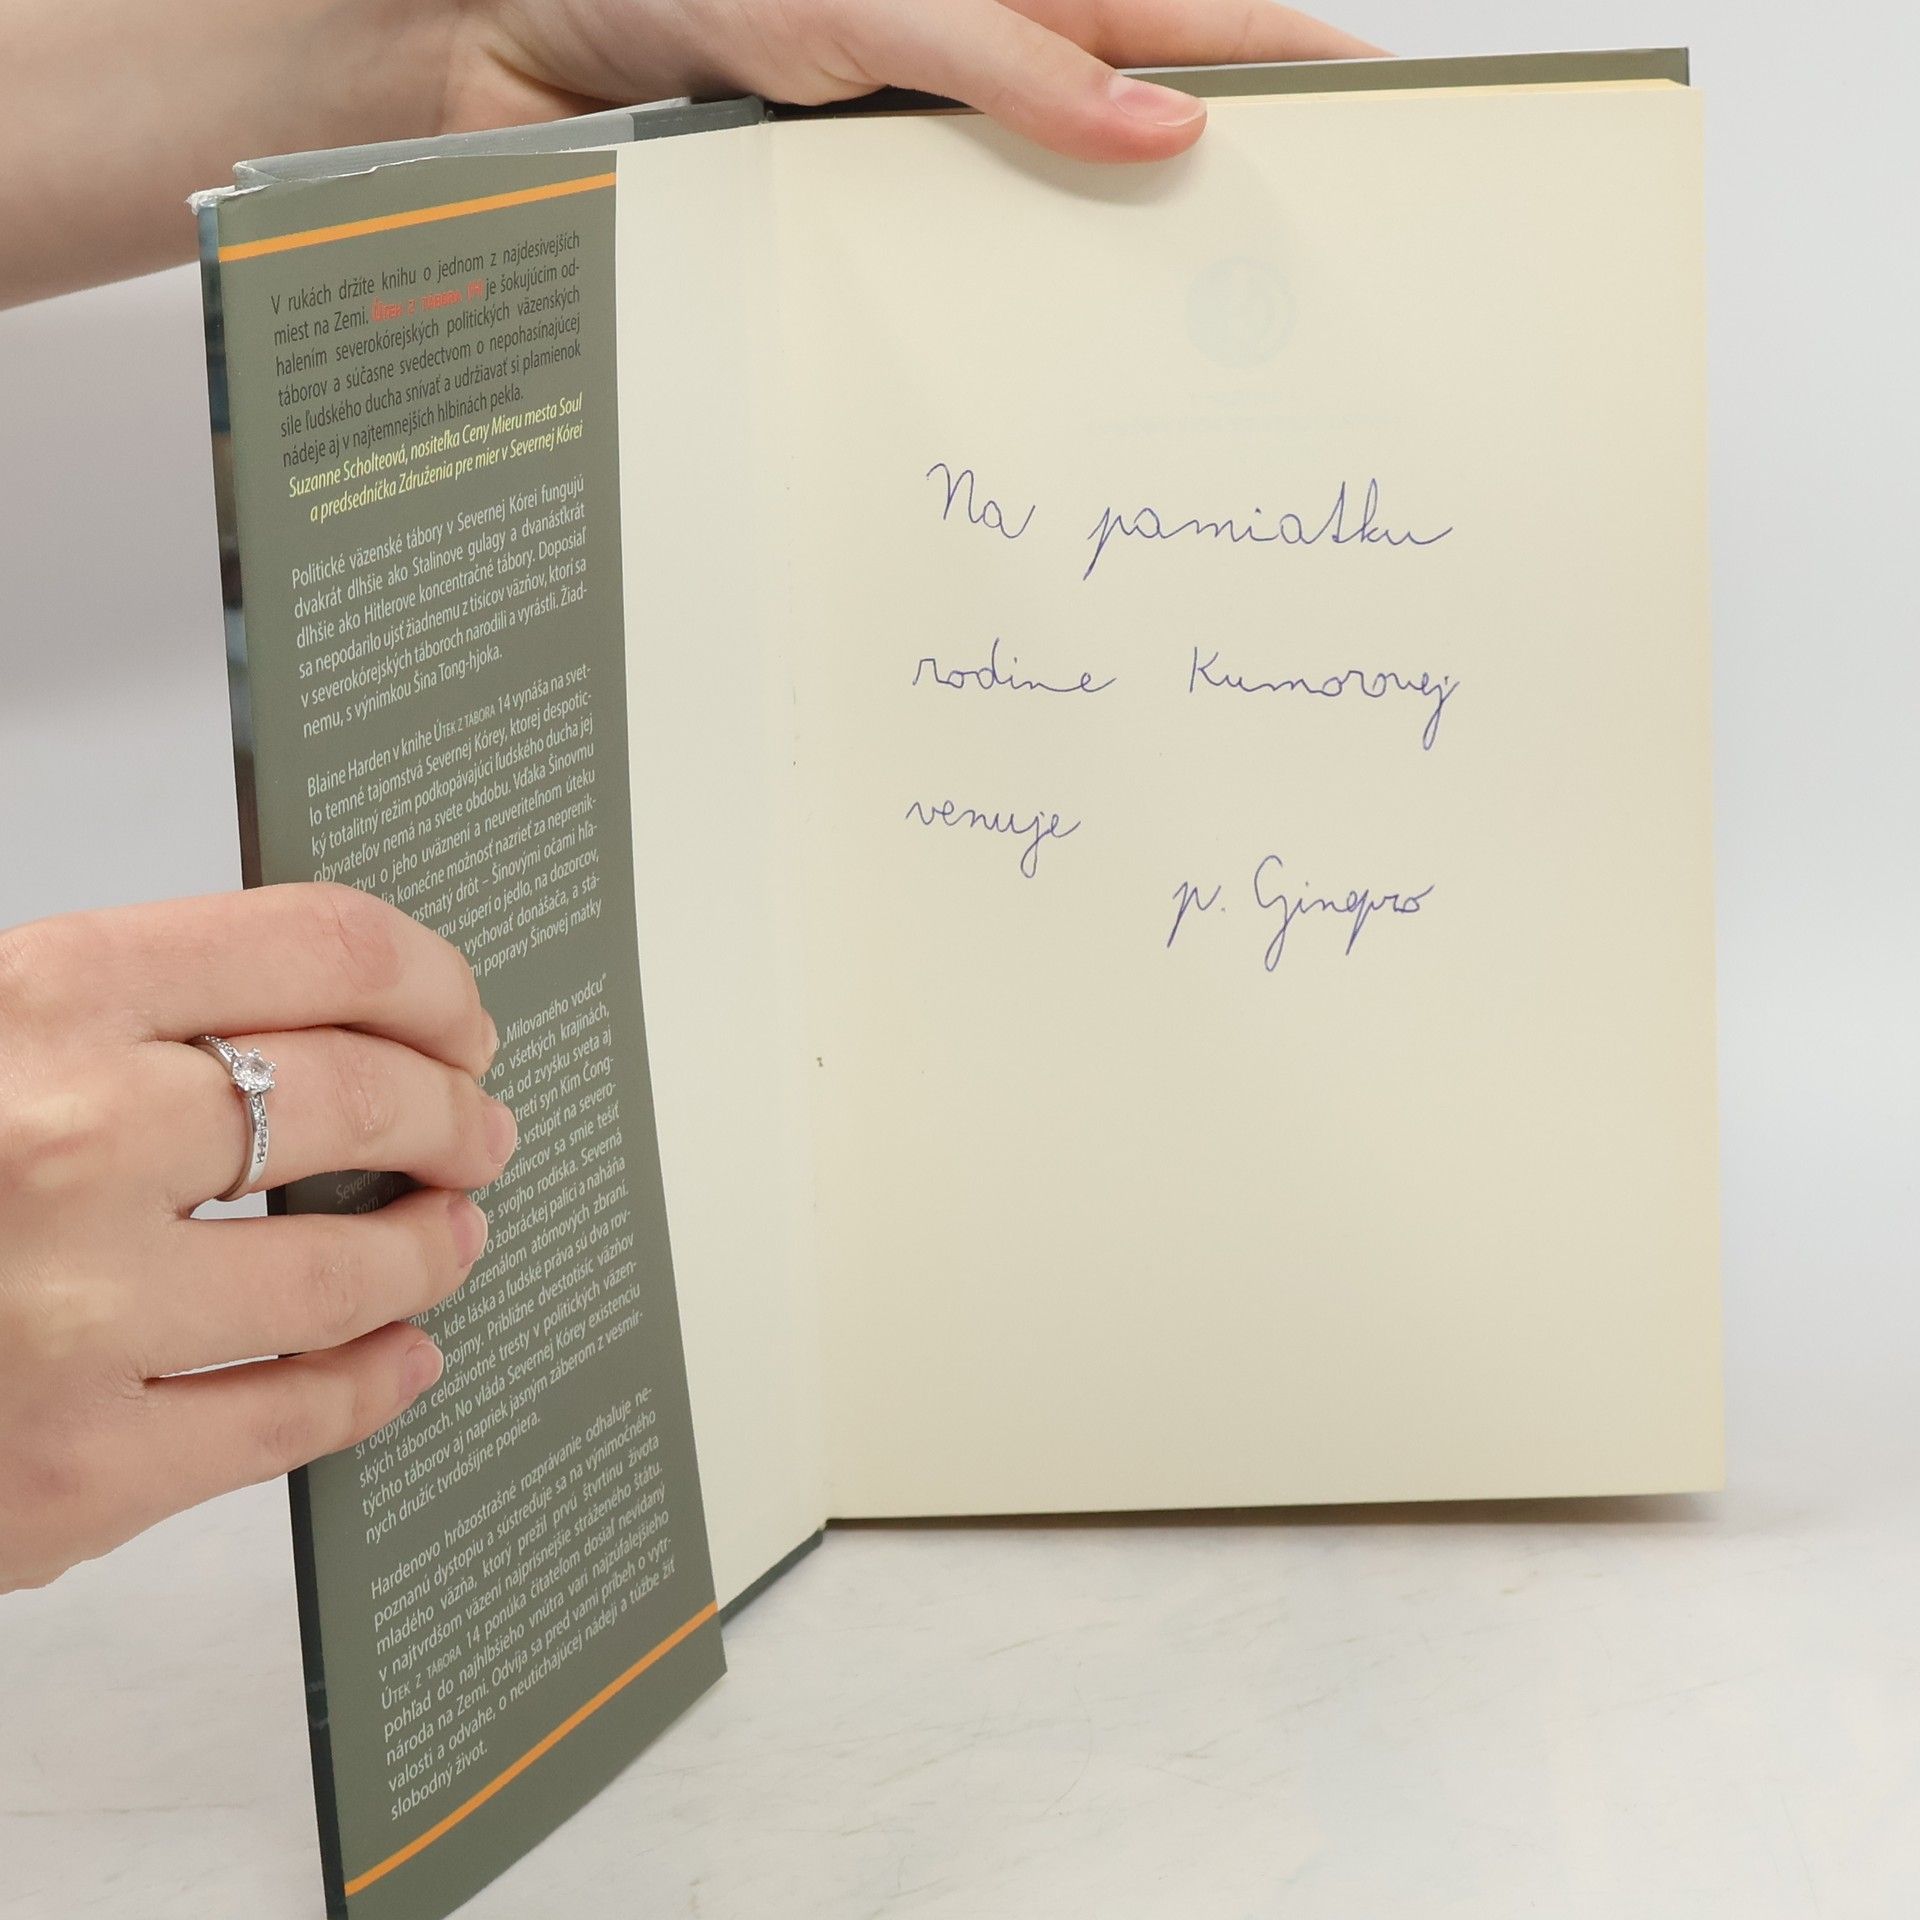 V rukách držíte knihu o jednom z najdesivejších
miest na Zemi. Útek z tábora 14 je šokujúcim od-
halením severokórejských politických väzenských
táborov a súčasne svedectvom o nepohasínajúcej
sile ľudského ducha snívať a udržiavať si plamienok
nádeje aj v najtemnejších hlbinách pekla.
Suzanne Scholteová, nositeľka Ceny Mieru mesta Soul
a predsedníčka Združenia pre mier v Severnej Kórei
Politické väzenské tábory v Severnej Kórei fungujú
dvakrát dlhšie ako Stalinove gulagy a dvanásťkrát
dlhšie ako Hitlerove koncentračné tábory. Doposiaľ
sa nepodarilo ujsť žiadnemu z tisícov väzňov, ktorí sa
v severokórejských táboroch narodili a vyrástli. Žiad-
nemu, s výnimkou Šina Tong-hjoka.
Blaine Harden v knihe ÚTEK Z TÁBORA 14 vynáša na svet-
lo temné tajomstvá Severnej Kórey, ktorej despotic-
ký totalitný režim podkopávajúci ľudského ducha jej
obyvateľov nemá na svete obdobu. Vďaka Šinovmu
o jeho uväznení a neuveriteľnom úteku
konečne možnosť nazrieť za neprenik-
ostnatý drôt – Šinovými očami hľa-
súperí o jedlo, na dozorcov,
vychovať donášača, a stá-
popravy Šinovej matky
„Milovaného vodcu“
vo všetkých krajinách,
od zvyšku sveta aj
tretí syn Kim Čong-
vstúpiť na severo-
šťastlivcov sa smie tešiť
svojho rodiska. Severná
žobráckej palici a naháňa
svetu arzenálom atómových zbraní.
kde láska a ľudské práva sú dva rov-
pojmy. Približne dvestotisíc väzňov
si odpykáva celoživotné tresty v politických väzen-
ských táboroch. No vláda Severnej Kórey existenciu
týchto táborov aj napriek jasným záberom z vesmír-
nych družíc tvrdošijne popiera.
Hardenovo hrôzostrašné rozprávanie odhaľuje ne-
poznanú dystopiu a sústreďuje sa na výnimočného
mladého väzňa, ktorý prežil prvú štvrtinu života
v najtvrdšom väzení najprísnejšie stráženého štátu.
ÚTEK Z TÁBORA 14 ponúka čitateľom dosiaľ nevídaný
pohľad do najhlbšieho vnútra vari najzúfalejšieho
národa na Zemi. Odvíja sa pred vami príbeh o vytr-
valosti a odvahe, o neutíchajúcej nádeji a túžbe žiť
slobodný život.
Na pamiatku
rodine Kumorovej
venuje
p. Ginepro